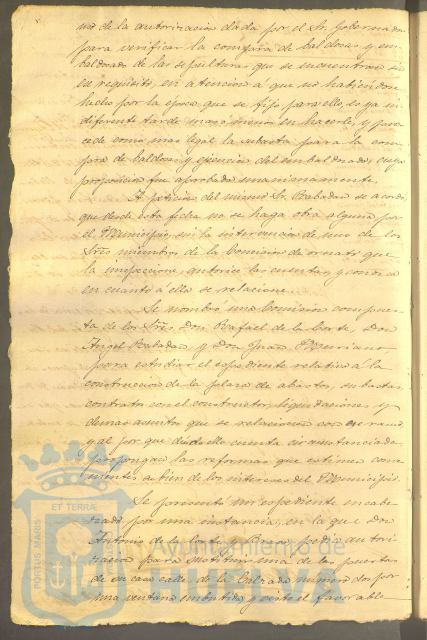 uso de la autorizacion dada por el Sr. Gobernador
para verificar la compra de baldosas y em-
baldosado de las sepulturas que se encuentran sin
ese requisito, en atencion á que no habiendose
hecho por la época que se fijó para ello, es ya in
diferente tarde mas ó menos en hacerlo, y proce
cede como mas legal la subasta para la com
pra de baldosas y ejecucion del embaldosado, cuya
proposicion fue aprobada unanimamente.
A peticion del mismo Sr. Rabadan se acordó
que desde esta fecha no se haga obra alguna por
el Municipio, sin la intervencion de uno de los
Sres. miembros de la Comision de ornato que
la inspeccione, autorice las cuentas y conozca
en cuanto á ella se relacione.
Se nombró una Comision compues-
ta de los Sres. Don Rafael de la Corte, Don
Angel Rabadan y Don Juan
para estudiar el espediente relativo á la
construccion de la plaza de abastos, subastas,
contrato con el constructor, liquidaciones y
demas asuntos que se relacionen con ese ramo
y al por que dando ello cuenta circunstanciada
propongan las reformas que estimen conve
nientes a bien de los intereses del Municipio.
Se presentó un espediente encabe
zado por una instancia, en la que Don
Antonio de la Corte y pedia autori
zacion para sustituir una de las puertas
de su casa calle de la Calzada numero dos por
una ventana embutida y visto el favorable
PORTUS MARIS
ET TERRAE
Ayuntamiento de